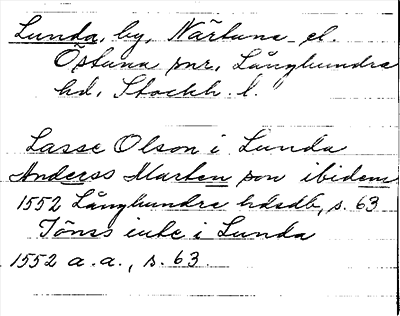 Lunda, by, Närtuna el.
Östuna snr, Långhundra
hd, Stockh. l.
Lasse Olson i Lunda
Anderss Marten son ibidem
1552 Långhundra hdsdb, s. 63
Tönss i Lunda
1552 a.a., s. 63.